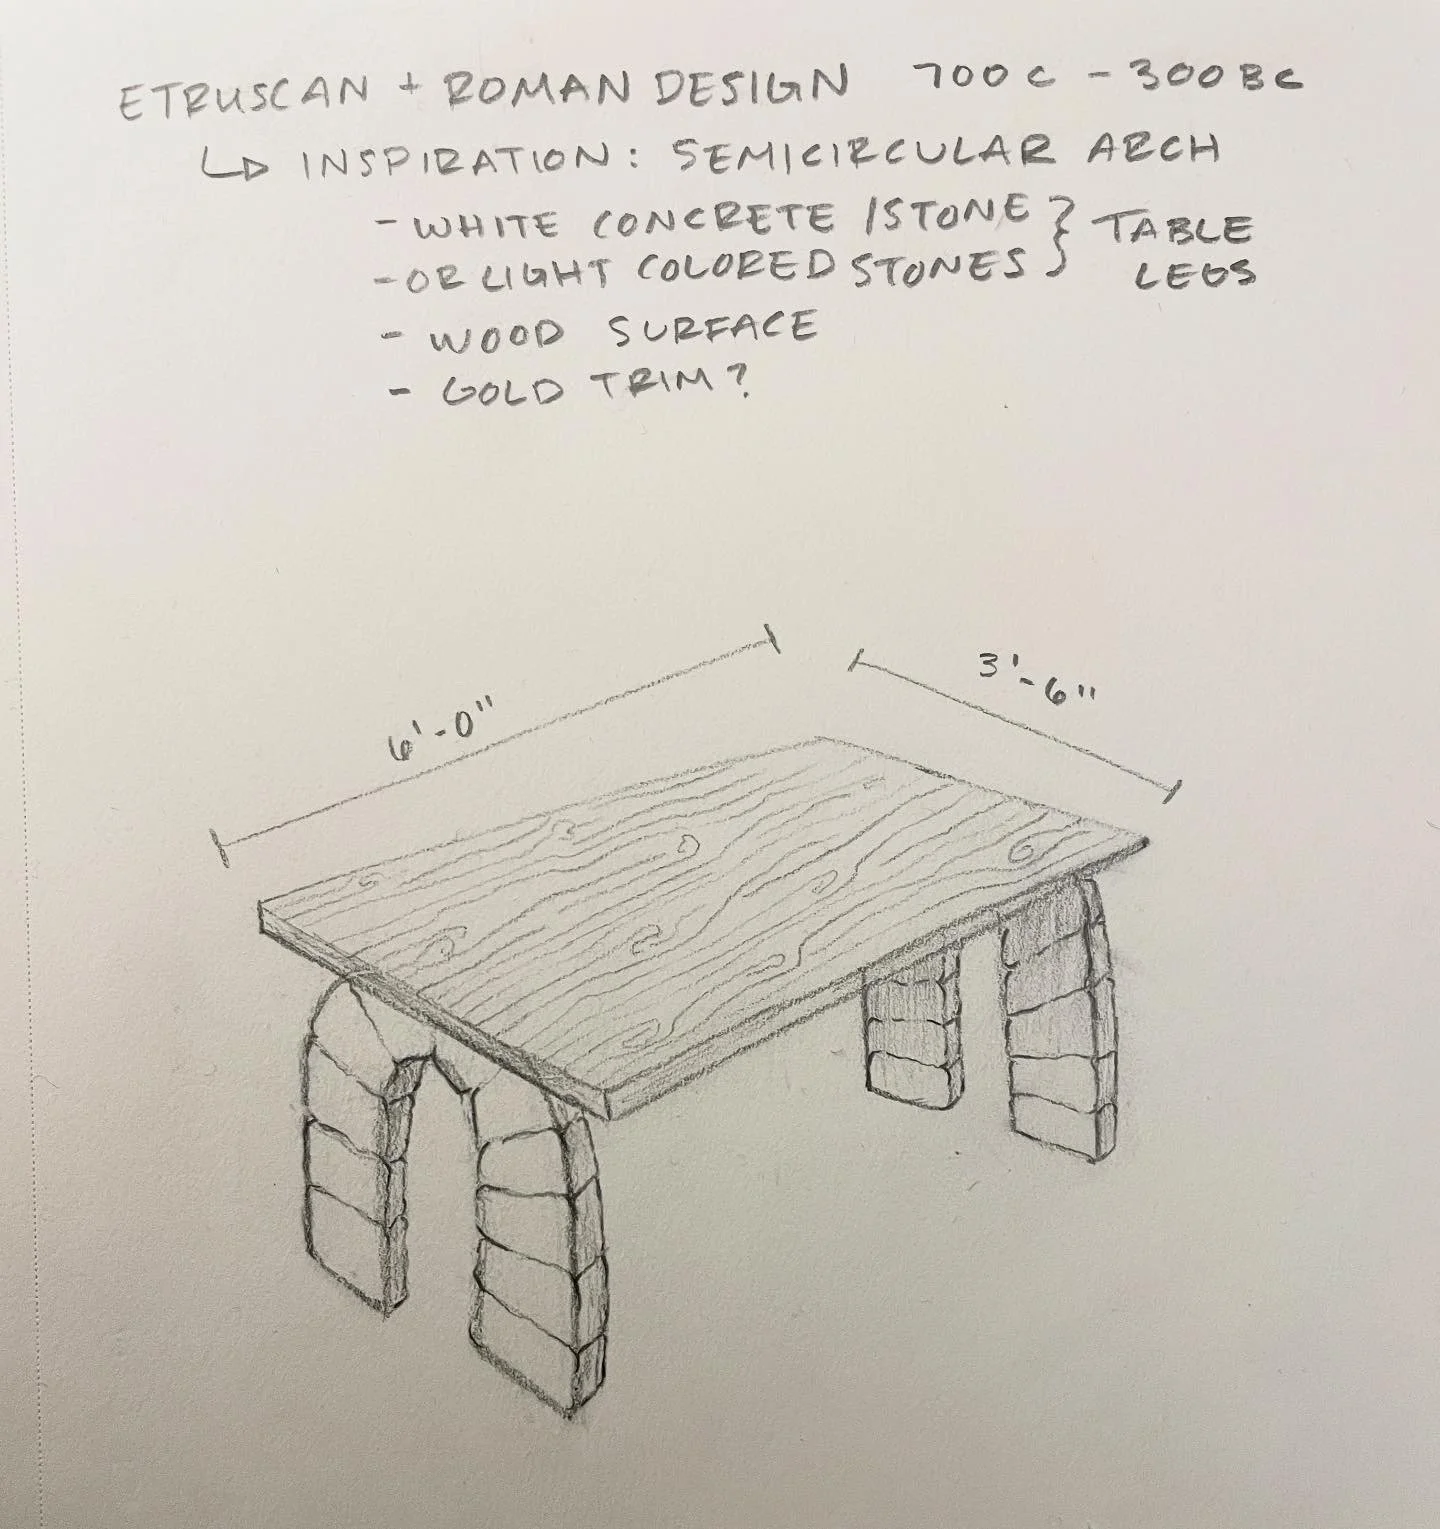 ETRUSCAN + ROMAN DESIGN 700 C - 300 BC
↳ INSPIRATION: SEMICIRCULAR ARCH
- WHITE CONCRETE / STONE } TABLE
- OR LIGHT COLORED STONES } LEGS
- WOOD SURFACE
- GOLD TRIM?
3'-6"
6'-0"